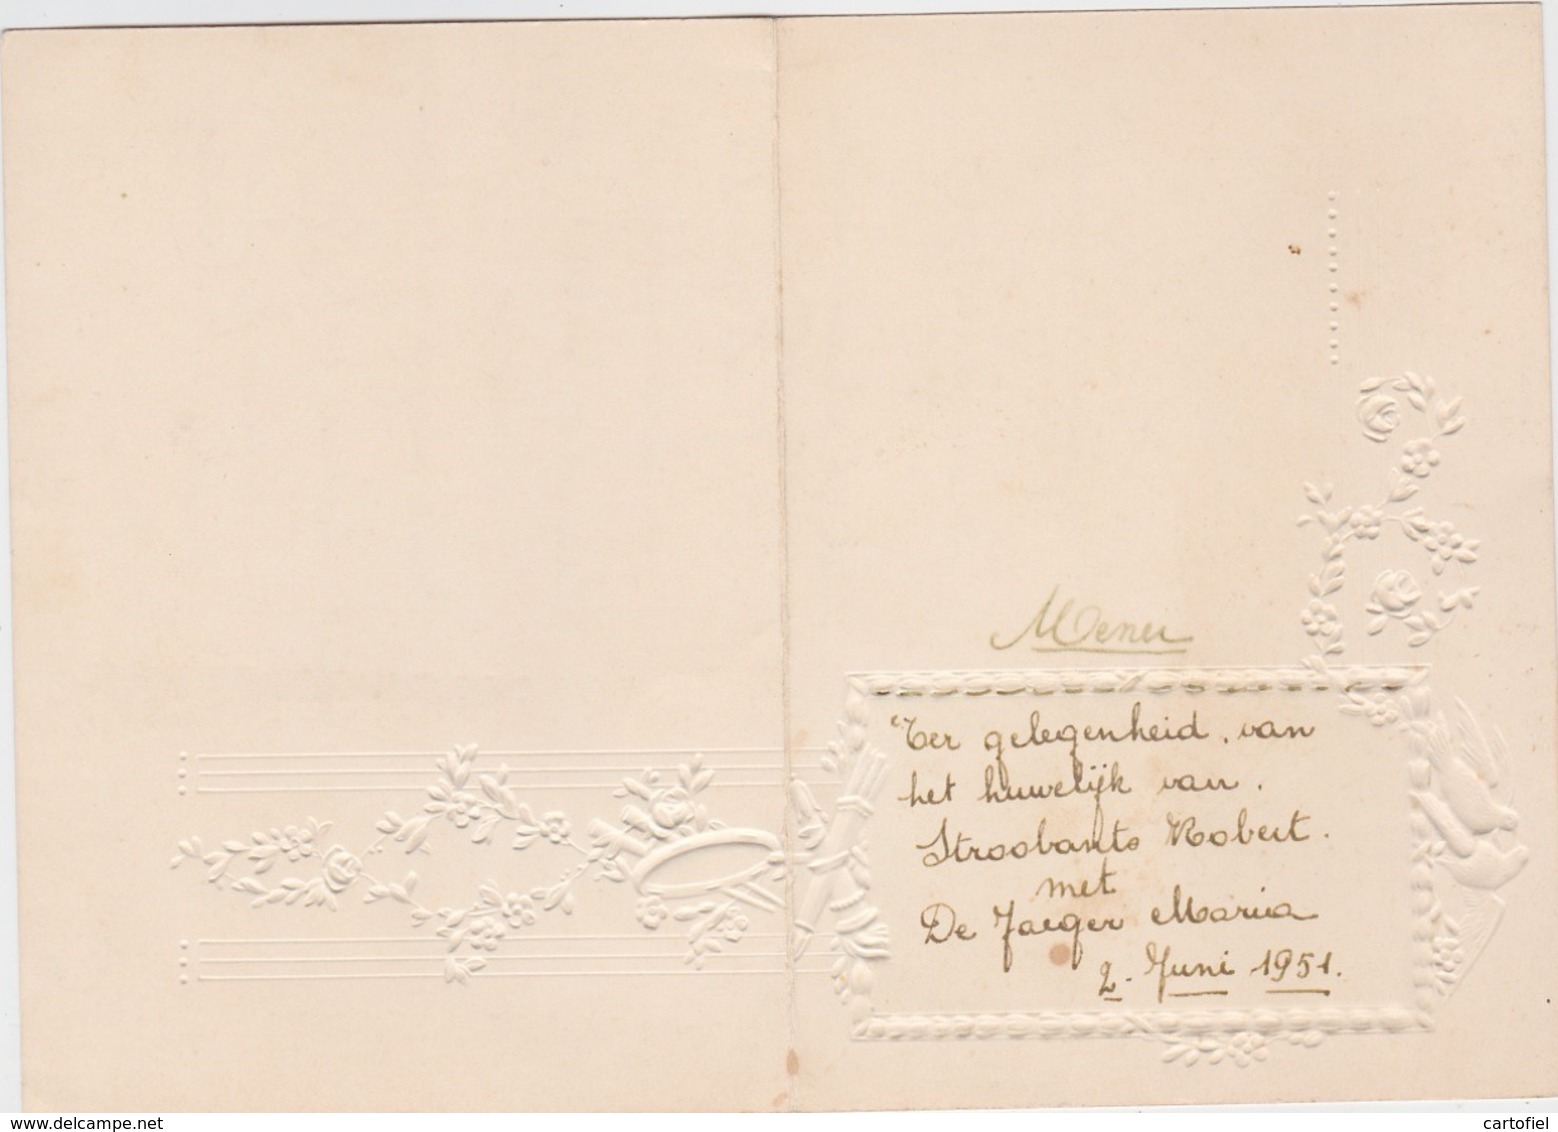 Menu
Ter gelegenheid van
het huwelijk van.
Stroobants Robert.
met
De Jaeger Maria
2. Juni 1951.
delcampe.net
cartofiel